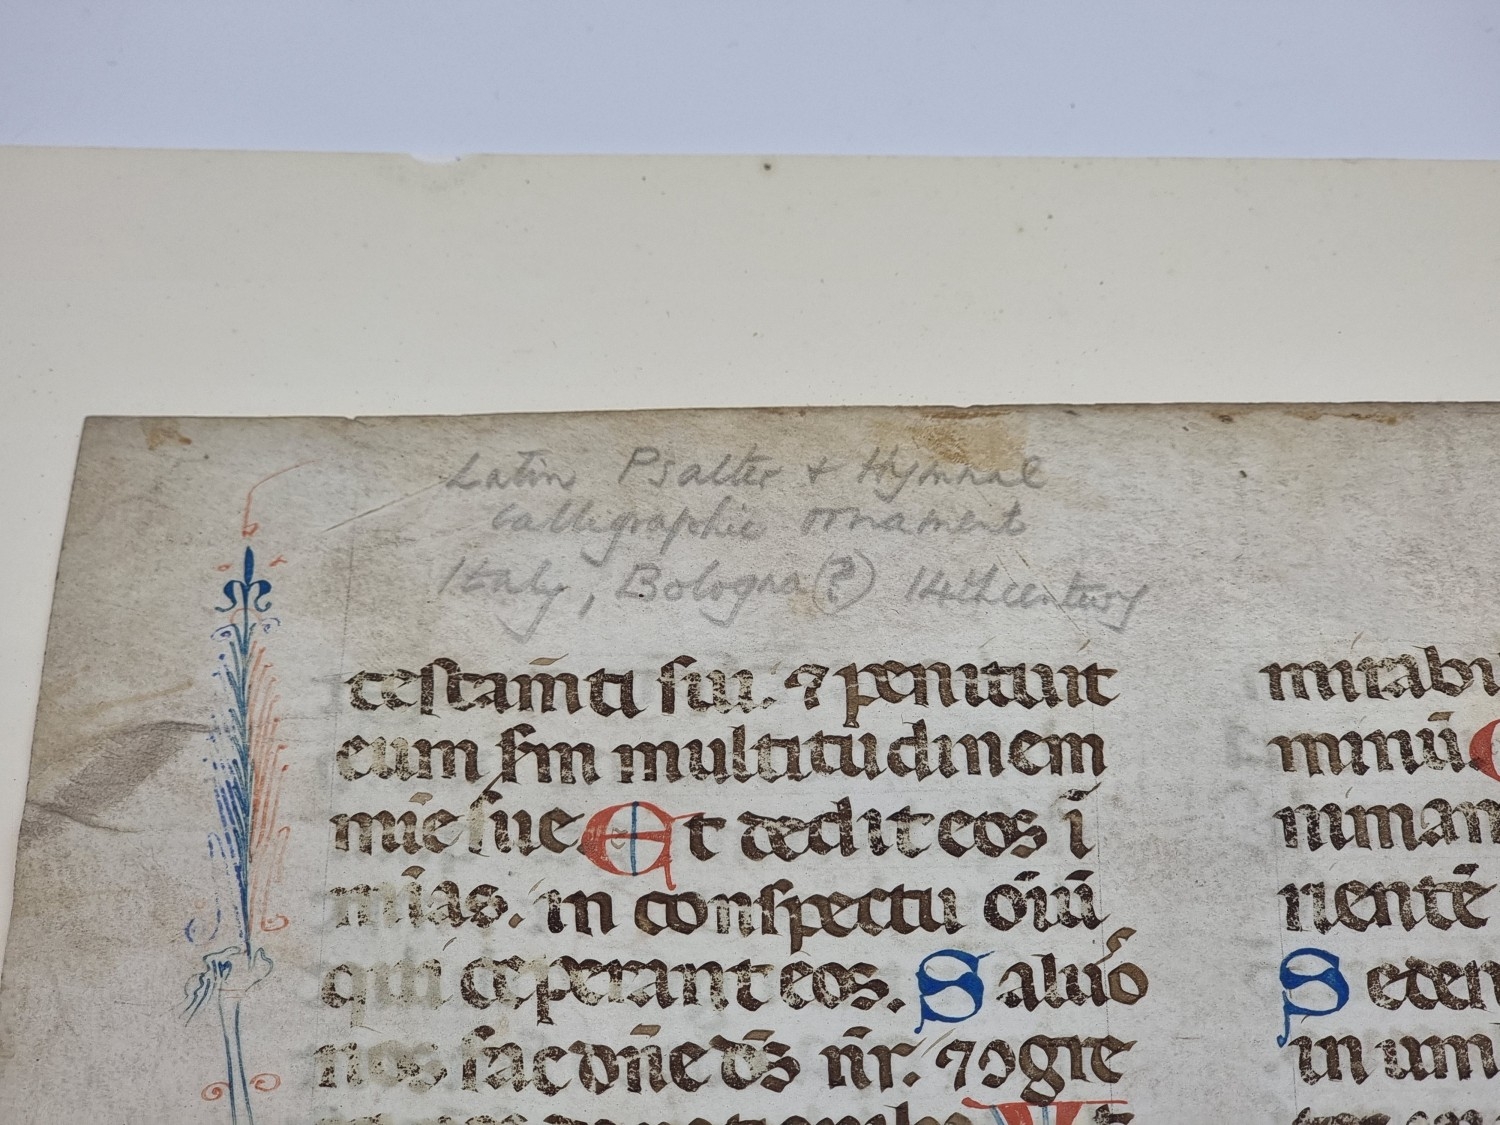 Latin Psalter + Hymnal
Calligraphic ornament
Italy, Bologna (?) 14th century
testam̄ti sui. ⁊ penituit
eum sm̄ multitudinem
mie sue Et dedit eos ī
mīas. in conspectu oīuū
qui ceperant eos. Saluo
nos fac dn̄e ds̄ nr̄. ⁊ ꝯgre
mirabi
minū
niman
rientē
Seden
in um